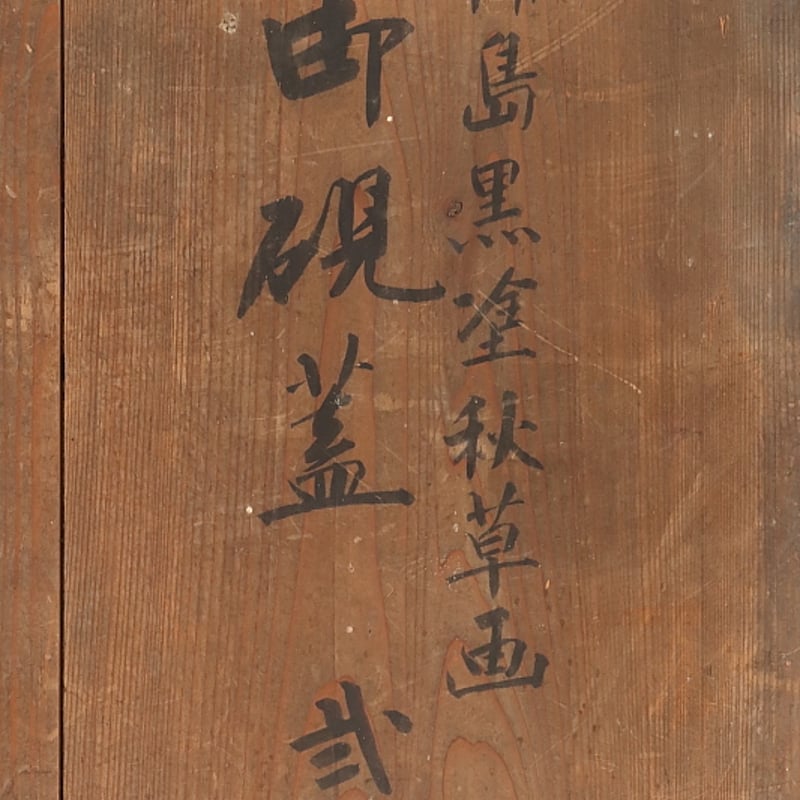 島黒塗秋草画
御硯蓋 弐